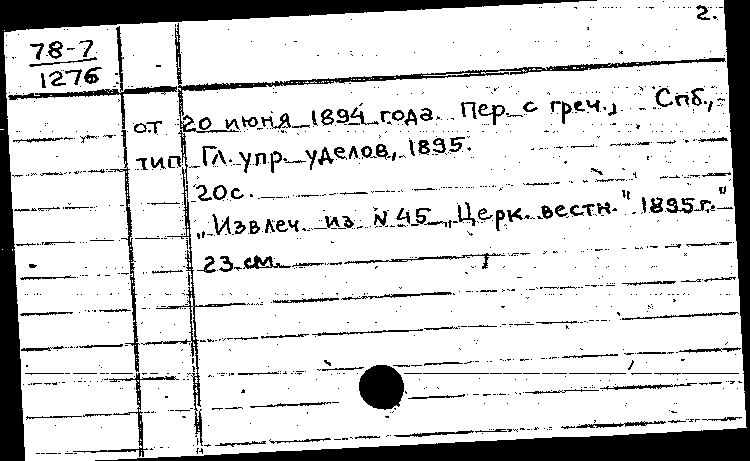 2.
78-7
1276
от 20 июня 1894 года. Пер. с греч., Спб.,
тип Гл. упр. уделов, 1895.
20с.
„Извлеч. из N 45 „Церк. вестн." 1895 г."
23 см.